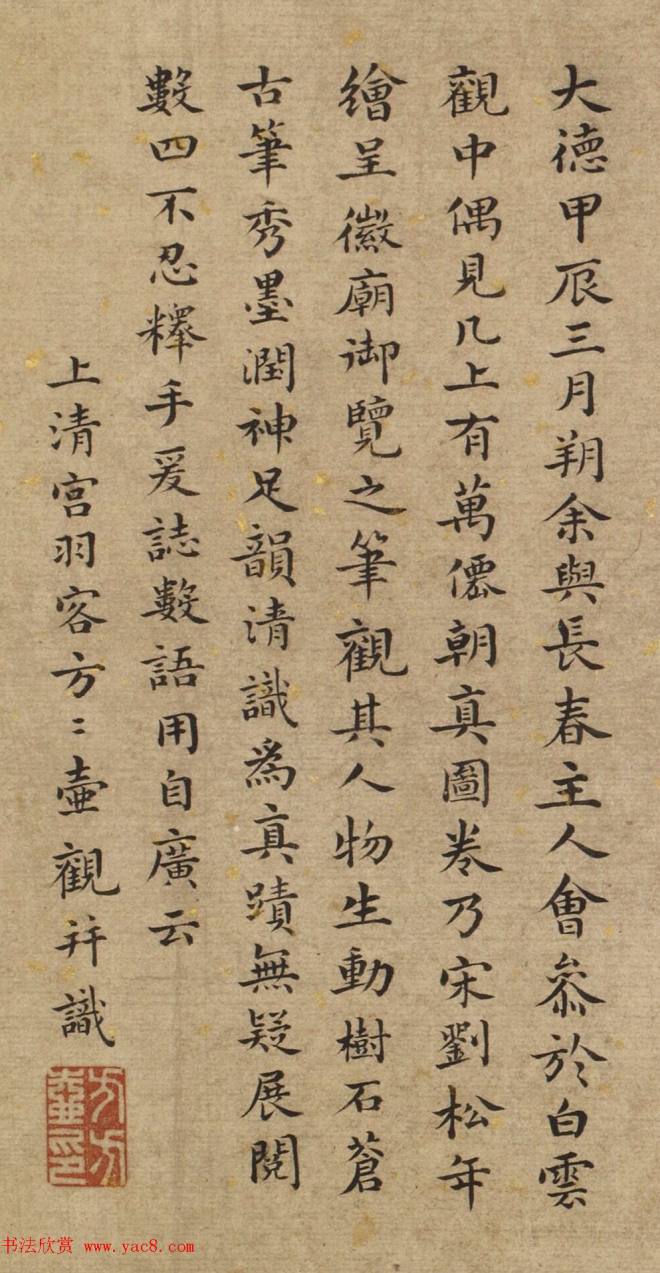 大德甲辰三月朔余與長春主人會叅於白雲
觀中偶見几上有萬僊朝真圖卷乃宋劉松年
繪呈徽廟御覽之筆觀其人物生動樹石蒼
古筆秀墨潤神足韻清識為真蹟無疑展閱
數四不忍釋手爰誌數語用自廣云
上清宮羽客方〻壷觀并識
方方壺印
书法欣赏 www.yac8.com